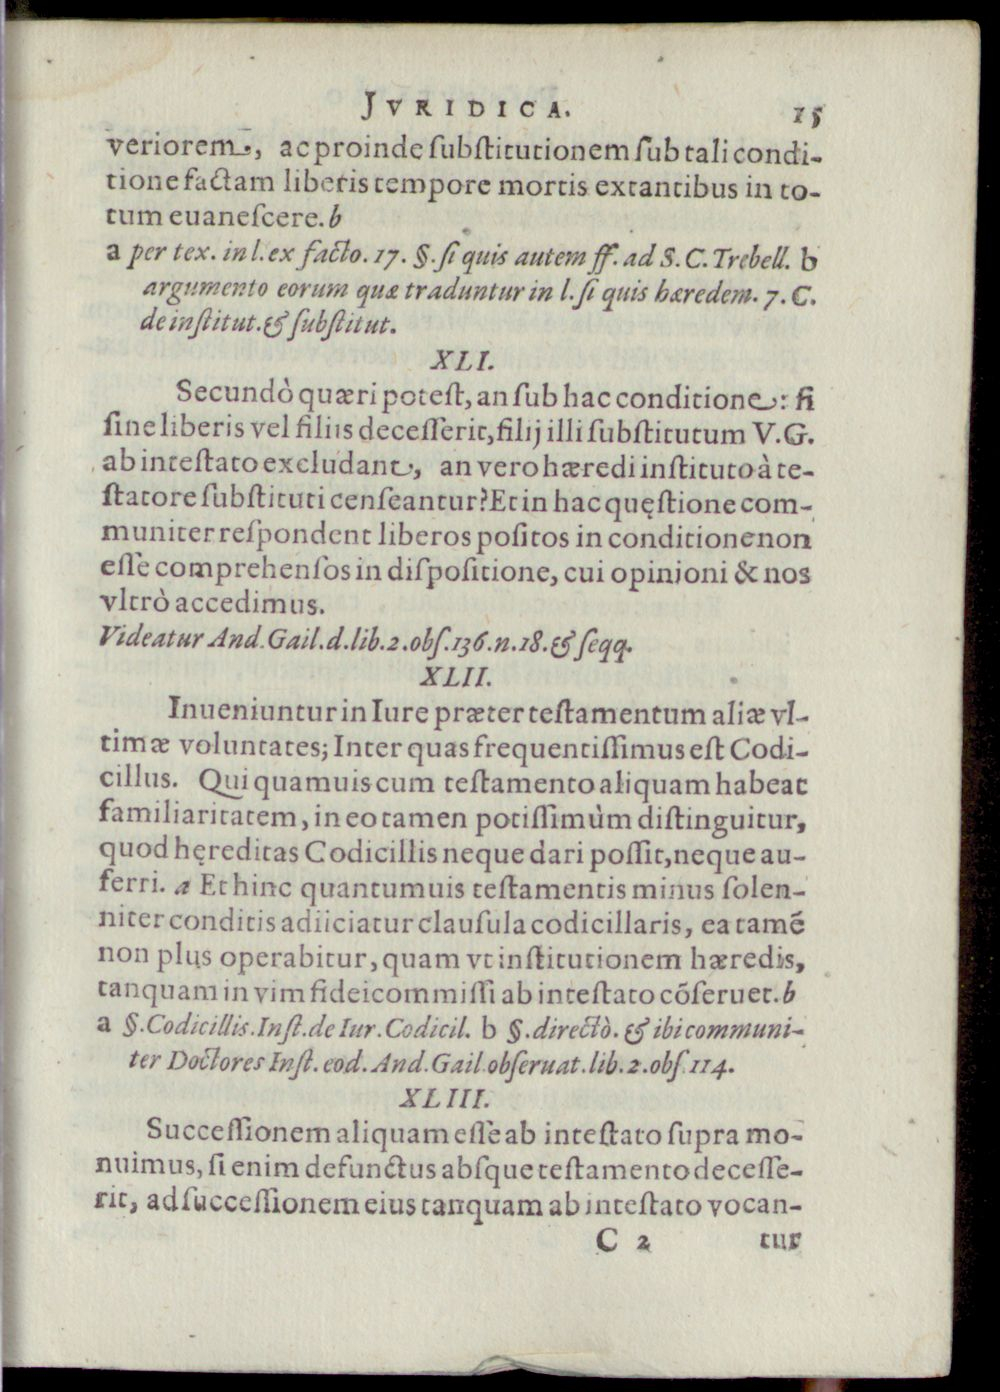 JVRIDICA. 15
veriorem, ac proinde ſubſtitutionem ſub tali condi-
tione factam liberis tempore mortis extantibus in to-
tum euaneſcere. b
a per tex. in l. ex facto. 17. §. ſi quis autem ff. ad S. C. Trebell. b
argumento eorum quæ traduntur in l. ſi quis hæredem. 7. C.
de inſtitut. & ſubſtitut.
XLI.
Secundò quæri poteſt, an ſub hac conditione: ſi
ſine liberis vel filiis deceſſerit, filij illi ſubſtitutum V.G.
ab inteſtato excludant, an vero hæredi inſtituto à te-
ſtatore ſubſtituti cenſeantur? Et in hac quęſtione com-
muniter reſpondent liberos poſitos in conditione non
eſſe comprehenſos in diſpoſitione, cui opinioni & nos
vltrò accedimus.
Videatur And. Gail. d. lib. 2. obſ. 136. n. 18. & ſeqq.
XLII.
Inueniuntur in Iure præter teſtamentum aliæ vl-
timæ voluntates; Inter quas frequentiſſimus eſt Codi-
cillus. Qui quamuis cum teſtamento aliquam habeat
familiaritatem, in eo tamen potiſſimùm diſtinguitur,
quod hęreditas Codicillis neque dari poſſit, neque au-
ferri. a Et hinc quantumuis teſtamentis minus ſolen-
niter conditis adiiciatur clauſula codicillaris, ea tamẽ
non plus operabitur, quam vt inſtitutionem hæredis,
tanquam in vim fideicommiſſi ab inteſtato cõſeruet. b
a §. Codicillis. Inſt. de Iur. Codicil. b §. directò. & ibi communi-
ter Doctores Inſt. eod. And. Gail obſeruat. lib. 2. obſ. 114.
XLIII.
Succeſſionem aliquam eſſe ab inteſtato ſupra mo-
nuimus, ſi enim defunctus abſque teſtamento deceſſe-
rit, ad ſucceſſionem eius tanquam ab inteſtato vocan-
C 2 tur